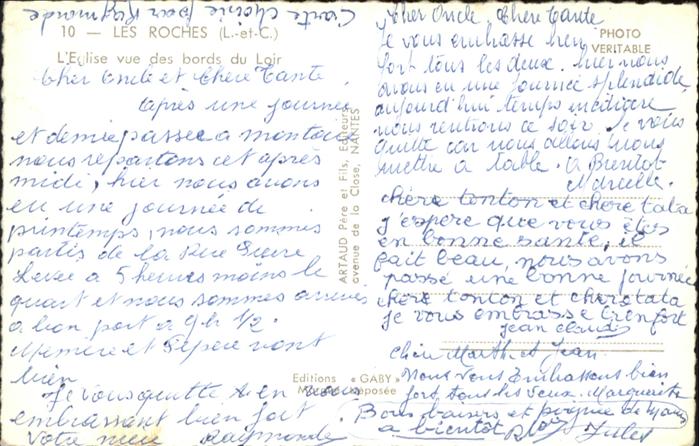 Carte choisie par Raymonde
10 — LES ROCHES (L.-et-C.)
L'Eglise vue des bords du Loir
Cher Oncle et Chère Tante
après une journée
et demie passée a montoir
nous repartons cet après
midi, hier nous avons
eu une journée de
printemps, nous sommes
partis de la Rue Pierre
Levée a 5 heures moins le
quart et nous sommes arrivés
a bon port a 9 h ½.
Mémère et Pépère vont
bien
Je vous quitte en vous
embrassant bien fort.
Votre nièce Raymonde
ARTAUD Père et Fils, Editeurs
avenue de la Close, NANTES
Editions « GABY »
Marque déposée
PHOTO
VERITABLE
Cher Oncle, Chère Tante
Je vous embrasse bien
fort tous les deux. hier nous
avons eu une journée splendide,
aujourd'hui temps médiocre
nous rentrons ce soir. Je vous
quitte car nous allons nous
mettre a table. a Bientôt
Marcelle.
chère tonton et chère tata
j'espère que vous êtes
en bonne santé, il
fait beau, nous avons
passé une bonne journée
chère tonton et chère tata
je vous embrasse très fort
jean claude
Chère Marthe et Jean.
Nous vous Embrassons bien
fort tous les deux. Marguerite
Bons baisers et poignée de Mains
a bientôt Jules